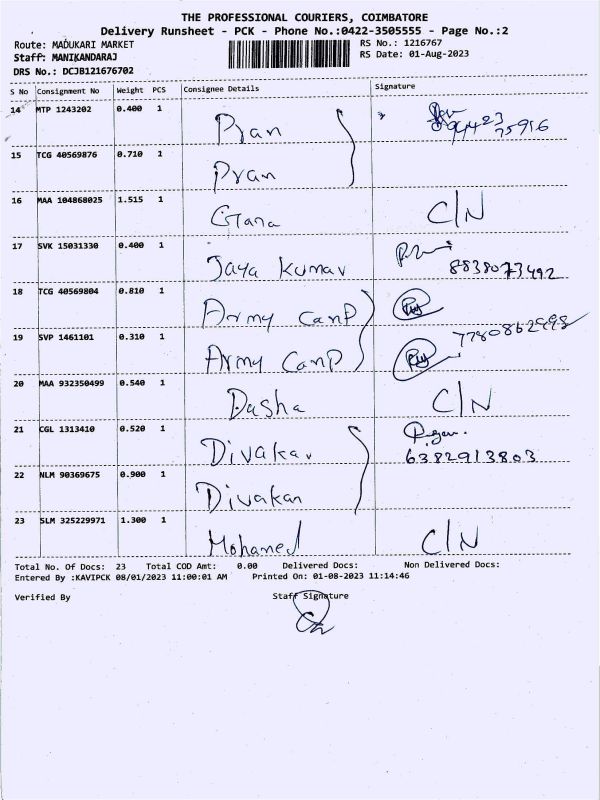 THE PROFESSIONAL COURIERS, COIMBATORE
Delivery Runsheet - PCK - Phone No.:0422-3505555 - Page No.:2
Route: MADUKARI MARKET
RS No.: 1216767
Staff: MANIKANDARAJ
RS Date: 01-Aug-2023
DRS No.: DCJB121676702
S No Consignment No Weight PCS Consignee Details Signature
14 MTP 1243202 0.400 1 Pran
15 TCG 40569876 0.710 1 Pran
16 MAA 104868025 1.515 1 Giana C/N
17 SVK 15031330 0.400 1 Jaya Kumar 8838073492
18 TCG 40569804 0.810 1 Army Canp
19 SVP 1461101 0.310 1 Army Canp
20 MAA 932350499 0.540 1 Dasha C/N
21 CGL 1313410 0.520 1 Divakar 6382913803
22 NLM 90369675 0.900 1 Divakan
23 SLM 325229971 1.300 1 Mohamed C/N
Total No. Of Docs: 23 Total COD Amt: 0.00 Delivered Docs: Non Delivered Docs:
Entered By :KAVIPCK 08/01/2023 11:00:01 AM Printed On: 01-08-2023 11:14:46
Verified By Staff Signature